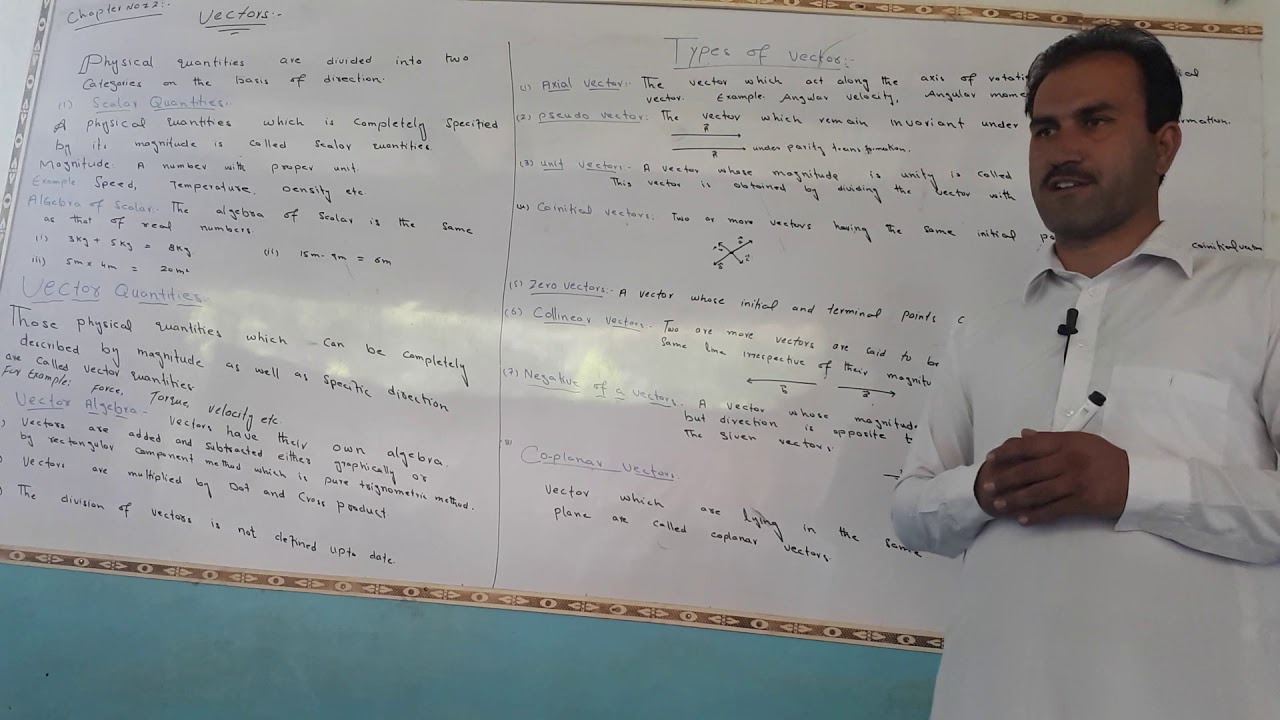 Chapter No 2:-
Vectors:-
Physical quantities are divided into two
Categories on the basis of direction.
(i) Scalar Quantities:-
A physical quantities which is completely specified
by its magnitude is called Scalar quantities
Magnitude: A number with proper unit.
Example Speed, Temperature, Density etc.
Algebra of Scalar:- The algebra of Scalar is the same
as that of real numbers.
(i) 3kg + 5kg = 8kg (ii) 15m - 9m = 6m
iii) 5m x 4m = 20m²
Vector Quantities:-
Those physical quantities which can be completely
described by magnitude as well as specific direction
are called vector quantities
For Example: Force, Torque, velocity etc.
Vector Algebra:- Vectors have their own algebra.
) Vectors are added and subtracted either graphically or
by rectangular component method which is pure trignometric method.
) Vectors are multiplied by Dot and Cross product
) The division of vectors is not defined upto date.
Types of vector:-
(1) Axial vector:- The vector which act along the axis of rotati
vector. Example: Angular velocity, Angular mome
(2) Pseudo vector: The vector which remain invariant under rmation.
under parity transformation.
(3) unit vectors:- A vector whose magnitude is unity is called
This vector is obtained by dividing the vector with
(4) Coinitial vectors: Two or more vectors having the same initial po coinitial
(5) Zero vectors:- A vector whose initial and terminal points c
(6) Collinear vectors:- Two are more vectors are said to be
same line irrespective of their magnitu
(7) Negative of a vectors. A vector whose magnitude
but direction is opposite t
The given vectors.
(8) Co-planar vectors.
vector which are lying in the same
plane are called coplanar vectors.